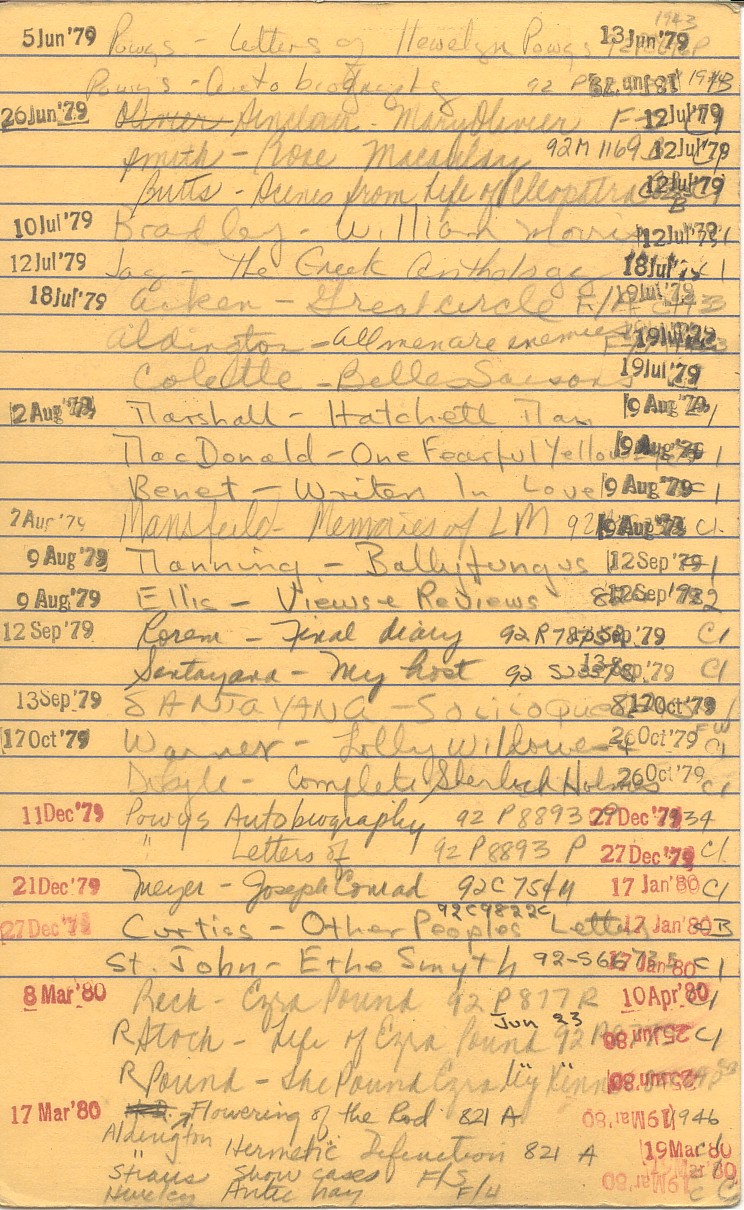 1943
5 Jun '79 Powys - Letters of Llewelyn Powys 13 Jun '79
Powys - Autobiography 92 P
26 Jun '79 Sinclair - Mary Olivier F 12 Jul '79
Smith - Rose Macaulay 92 M 1169 12 Jul '79
Butts - Scenes from Life of Cleopatra 12 Jul '79
B
10 Jul '79 Bradley - William Morris 12 Jul '79
12 Jul '79 Jay - The Greek Anthology 18 Jul '79
18 Jul '79 Aiken - Great circle F/A 19 Jul '79
Aldington - All men are enemies 19 Jul '79
Colette - Belles Saisons 19 Jul '79
2 Aug '79 Marshall - Hatchett Man 9 Aug '79
MacDonald - One Fearful Yellow 9 Aug '79
Benet - Writers In Love 9 Aug '79 C1
7 Aug '79 Mansfield - Memories of LM 92 9 Aug '79 C1
9 Aug '79 Manning - Ballyfungus 12 Sep '79
9 Aug '79 Ellis - Views & Reviews 12 Sep '79
12 Sep '79 Lorem - Final diary 92 R Sep '79 C1
Santayana - My host 92 13 Sep '79 C1
13 Sep '79 SANTAYANA - Soliloquies 17 Oct '79
17 Oct '79 Warner - Lolly Willowes 26 Oct '79 FW C1
Doyle - Complete Sherlock Holmes 26 Oct '79 C1
11 Dec '79 Powys Autobiography 92 P8893 27 Dec '79 1934
" Letters of 92 P8893 P 27 Dec '79 C1
21 Dec '79 Meyer - Joseph Conrad 92 C754M 17 Jan '80 C1
92C9822C
27 Dec '79 Curtiss - Other Peoples Letters 17 Jan '80 CB
St. John - Ethe Smyth 92-S 17 Jan '80 C1
8 Mar '80 Reck - Ezra Pound 92 P877R 10 Apr '80 C1
Jun 23
R Stock - Life of Ezra Pound 92 25 Jun '80 C1
R Pound - the Pound Era Hy Kenner 25 Jun '80
17 Mar '80 Flowering of the Rod 821 A 19 Mar '80 1946
Aldington
" Hermetic Definition 821 A 19 Mar '80
Straus Show cases F/S 19 Mar '80
Huxley Antic hay F/H C